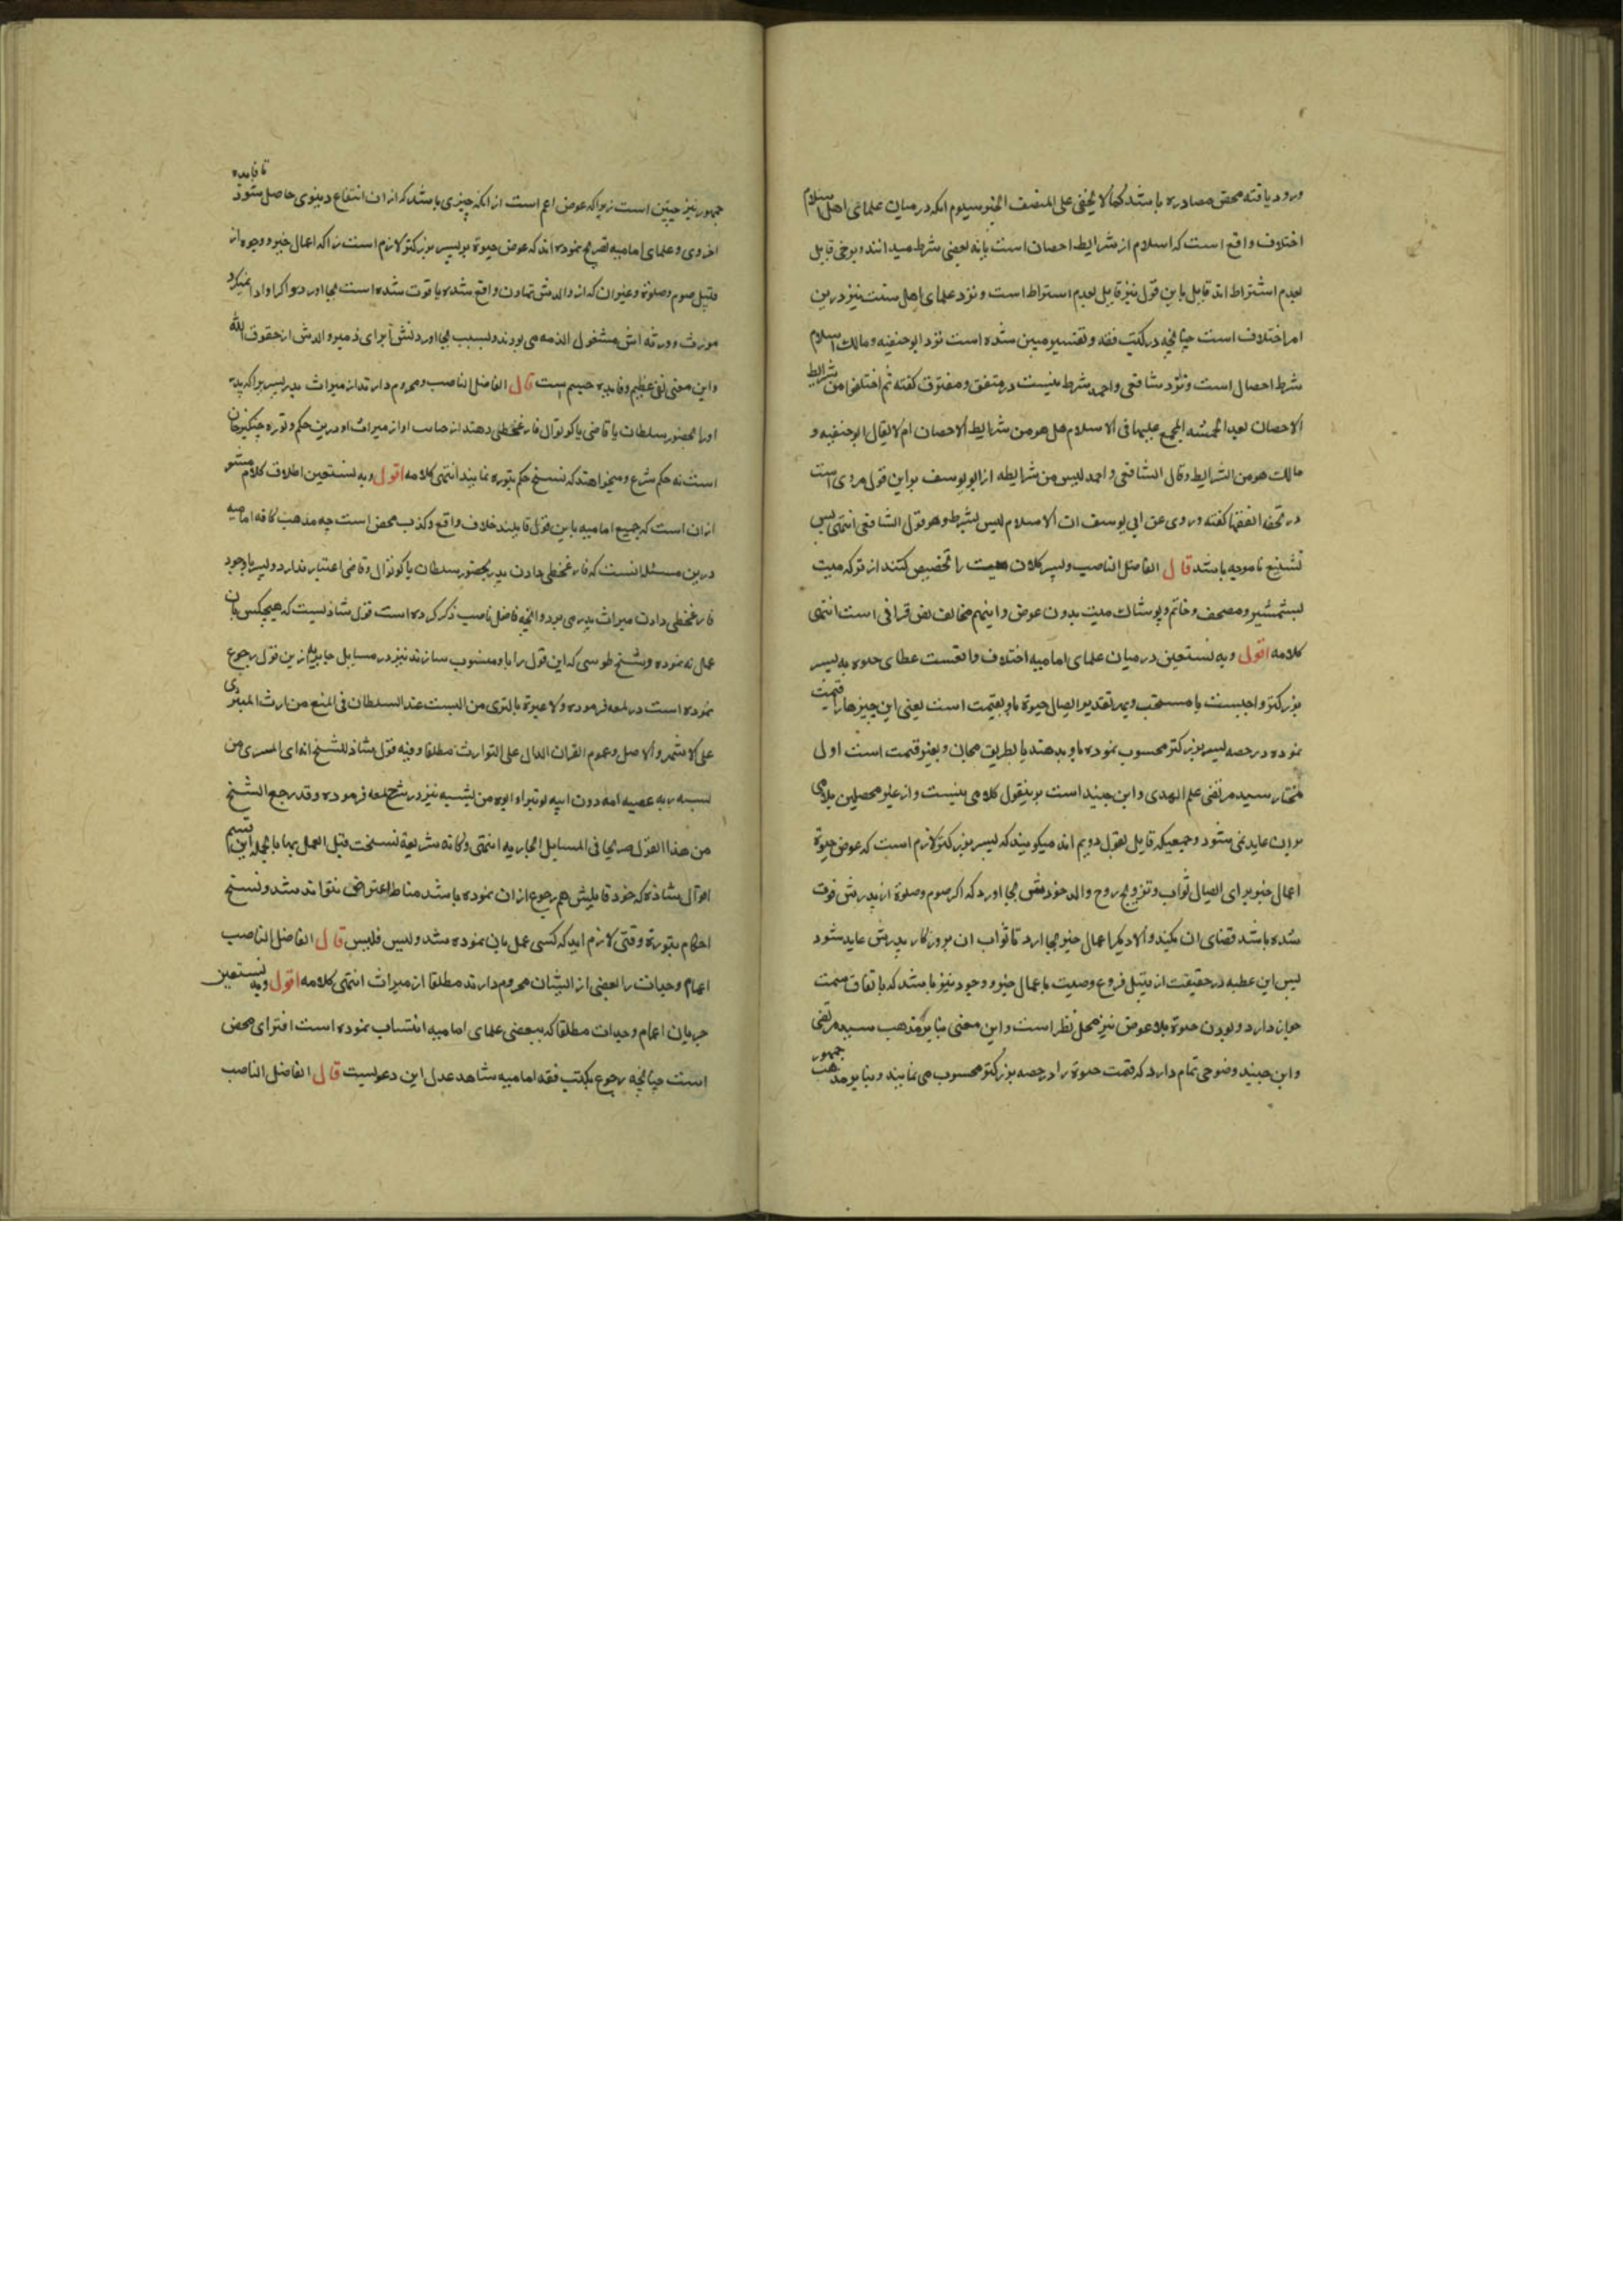 ورود یافته محض مصادره باشد کما لا یخفی علی المنصف الخبیر سیوم انکه در میان علمای اهل اسلام
اختلاف واقع است که اسلام از شرایط احصان است یا نه بعضی شرط میدانند و برخی قایل
بعدم اشتراط اند قایل باین قول نیز قایل بعدم اشتراط است و نزد علمای اهل سنت نیز درین
امر اختلاف است چنانچه در کتب فقه و تفسیر مبین شده است نزد ابو حنیفه و مالک اسلام
شرط احصان است و نزد شافعی و احمد شرط نیست در متفق و مفترق کفته ثم اختلفوا من شرایط
الاحصان بعد الخمسه المجمع علیها فی الاسلام هل هو من شرایط الاحصان ام لا فقال ابو حنیفه و
مالک هو من الشرایط و قال الشافعی و احمد لیس من شرایطه از ابو یوسف نیز این قول مروی است
در تحفه الفقها کفته و روی عن ابی یوسف ان الاسلام لیس بشرط و هو قول الشافعی انتهی پس
تشنیع نا موجه باشد قال الفاضل الناصب و پسر کلان میت را تخصیص کنند از ترکه میت
بشمشیر و مصحف و خاتم و پوشاک میت بدون عوض و اینهم مخالف نص قرانی است انتهی
کلامه اقول و به نستعین در میان علمای امامیه اختلاف واقعست عطای حبوه به پسر
بزرکتر واجبست یا مستحب و بهر تقدیر ایصال حبوة باو بقیمت است یعنی این چیزها را قیمت
نموده در حصه پسر بزرکتر محسوب نموده باو بدهند یا بطریق مجان و بغیر قیمت است اول
مختار سید مرتضی علم الهدی و ابن جنید است برینقول کلامی نیست و از غیر محصلین ملامی
بران عاید نمی شود و جمعیکه قایل بقول دویم اند میکویند که پسر بزرکتر لازم است که عوض حبوة
اعمال خیر برای ایصال ثواب و ترویح روح والد خودش بجا اورد که اکر صوم و صلوة از پدرش فوت
شده باشد قضای ان بکند و الا دیکر اعمال خیر بجا ارد تا ثواب ان بروزکار پدرش عاید شود
پس این عطیه در حقیقت از قبیل فروع وصیت باعمال خیر و وجود نیز باشد که باتفاق سمت
جواز دارد و بودن حبوة بلا عوض نیز محل نظر است و این معنی بنا بر مذهب سید مرتضی
و ابن جنید وضوحی تمام دارد که قیمت حبوة را در حصه بزرکتر محسوب می نمایند و بنا بر مذهب جمهور
جمهور نیز چنین است زیرا که عوض اعم است از انکه چیزی باشد که از ان انتفاع دنیوی حاصل شود یا فایده
اخروی و علمای امامیه تصریح نموده اند که عوض حبوة بر پسر بزرکتر لازم است که اعمال خیر و وجوه از
قبیل صوم و صلوة و غیر ان که از والدش تهاون واقع شده یا فوت شده است بجا اورد و اکر او ادا نمیکرد
مورث و ورثه اش مشغول الذمه می بودند و بسبب بجا اوردنش ابرای ذمه والدش از حقوق الله
و این معنی نفع عظیم و فایده جسیم است قال الفاضل الناصب و محروم دارند از میراث پدر پسر را که پدر
او را بحضور سلطان یا قاضی یا کوتوال فارغخطی دهند از جانب او از میراث او درین حکم و توره چنکیزخان
است نه حکم شرع و میخواهند که نسخ حکم بتوره نمایند انتهی کلامه اقول و به نستعین اطلاق کلام مشعر
ازان است که جمیع امامیه باین قول قایلند خلاف واقع و کذب محض است چه مذهب کافه امامیه
درین مسئله انست که فارغخطی دادن پدر بحضور سلطان یا کوتوال و قاضی اعتبار ندارد و پسر باوجود
فارغخطی دادن میراث پدر می برد و انچه فاضل ناصب ذکر کرده است قول شاذیست که هیچکس بان
عمل نه نموده و شیخ طوسی که این قول را باو منسوب سازند نیز در مسایل حایریه ازین قول رجوع
نموده است در لمعه فرموده و لا عبرة بالتبری من النسب عند السلطان فی المنع من ارث المتبری
علی الاشهر و الاصل و عموم القران الدال علی التوارث مطلقا و فیه قول شاذ للشیخ انه ای المتبری من
نسبه یرثه عصبة امه دون ابیه لو تبرا ابوه من نسبه نیز در شرح لمعه فرموده و قد رجع الشیخ
من هذا القول صریحا فی المسایل الحایریه انتهی و کانه شریعة نسخت قبل العمل بها بالجمله این قسم
اقوال شاذه که خود قایلش هم رجوع از ان نموده باشد مناط اعتراض نتواند شد و نسخ
احکام بتوره وقتی لازم اید که کسی عمل بان نموده شد و لیس فلیس قال الفاضل الناصب
اعمام و جدات را بعضی از ایشان محروم دارند مطلقا از میراث انتهی کلامه اقول و به نستعین
حرمان اعمام و جدات مطلقا که ببعضی علمای امامیه انتساب نموده است افترای محض
است چنانچه رجوع بکتب فقه امامیه شاهد عدل این دعویست قال الفاضل الناصب